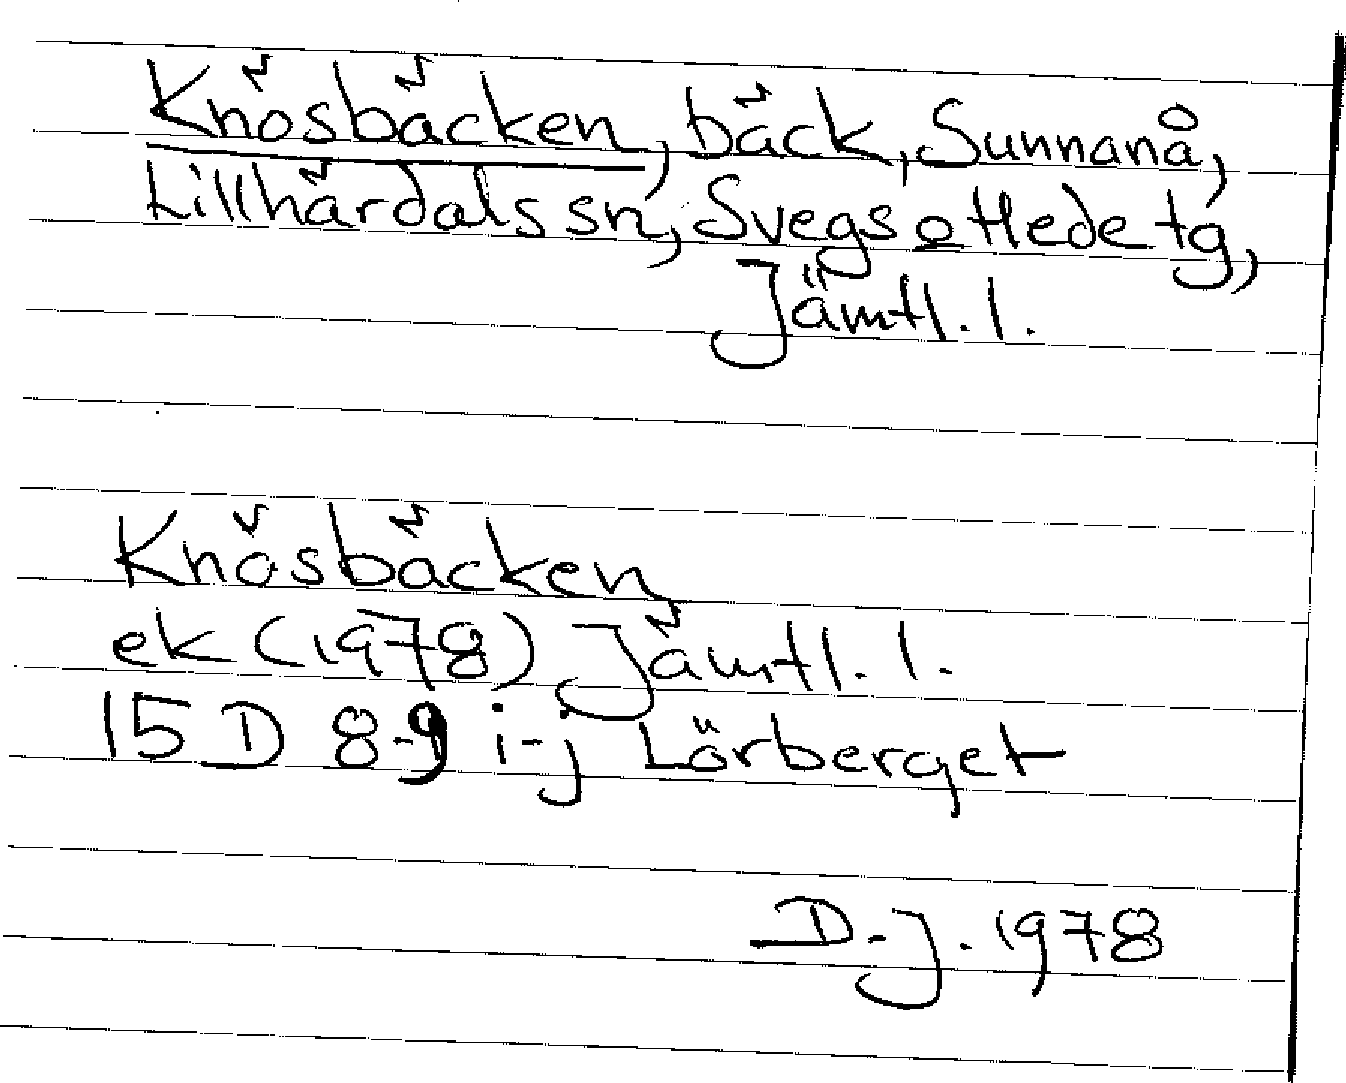 Knösbäcken, bäck, Sunnanå,
Lillhärdals sn, Svegs o Hede tg,
Jämtl. l.
Knösbäcken
ek (1978) Jämtl. l.
15 D 8-9 i-j Lörberget
D.J. 1978